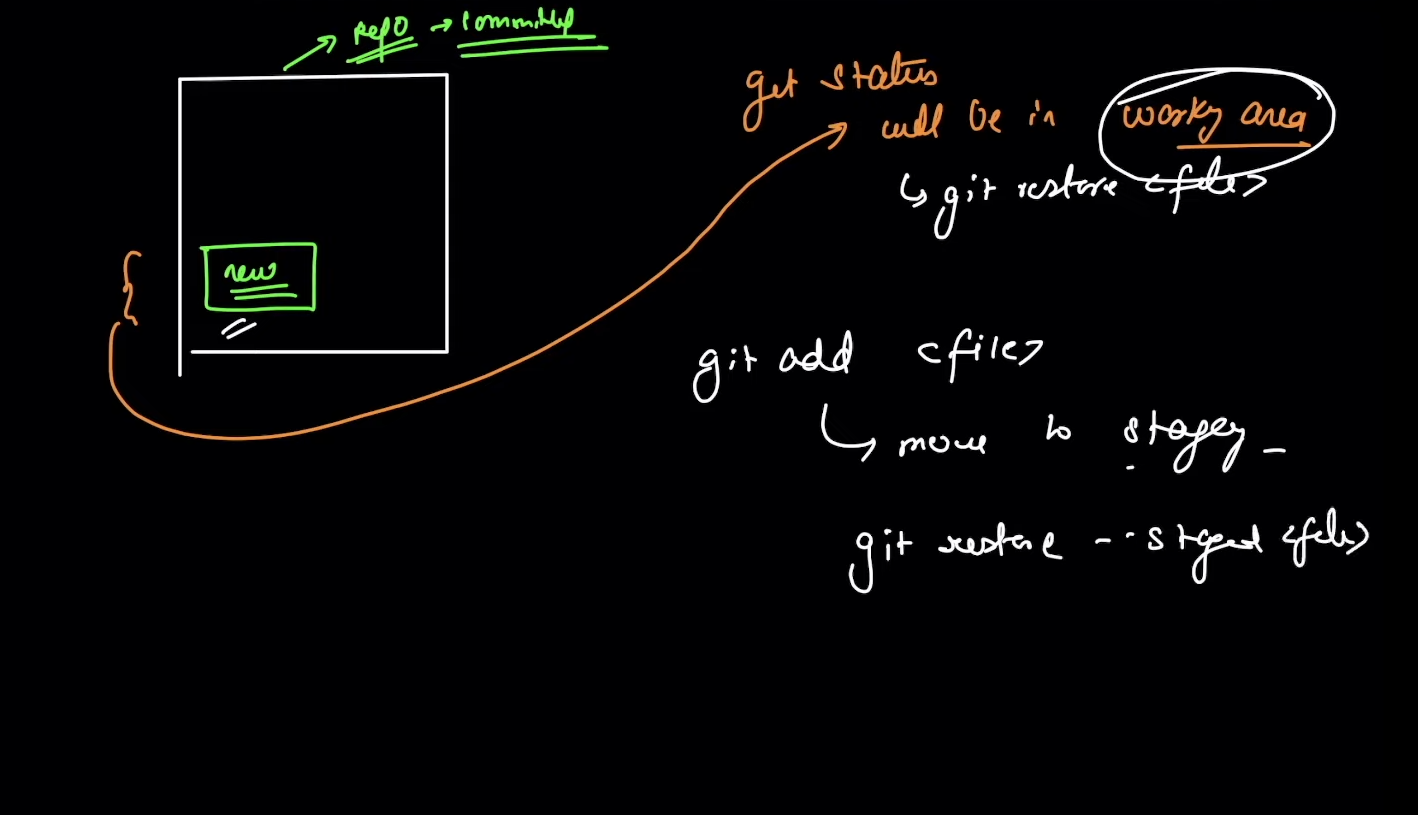 repo → committed
get status
will be in working area
↳ git restore <file>
new
git add <file>
↳ move to staging -
git restore --staged <file>